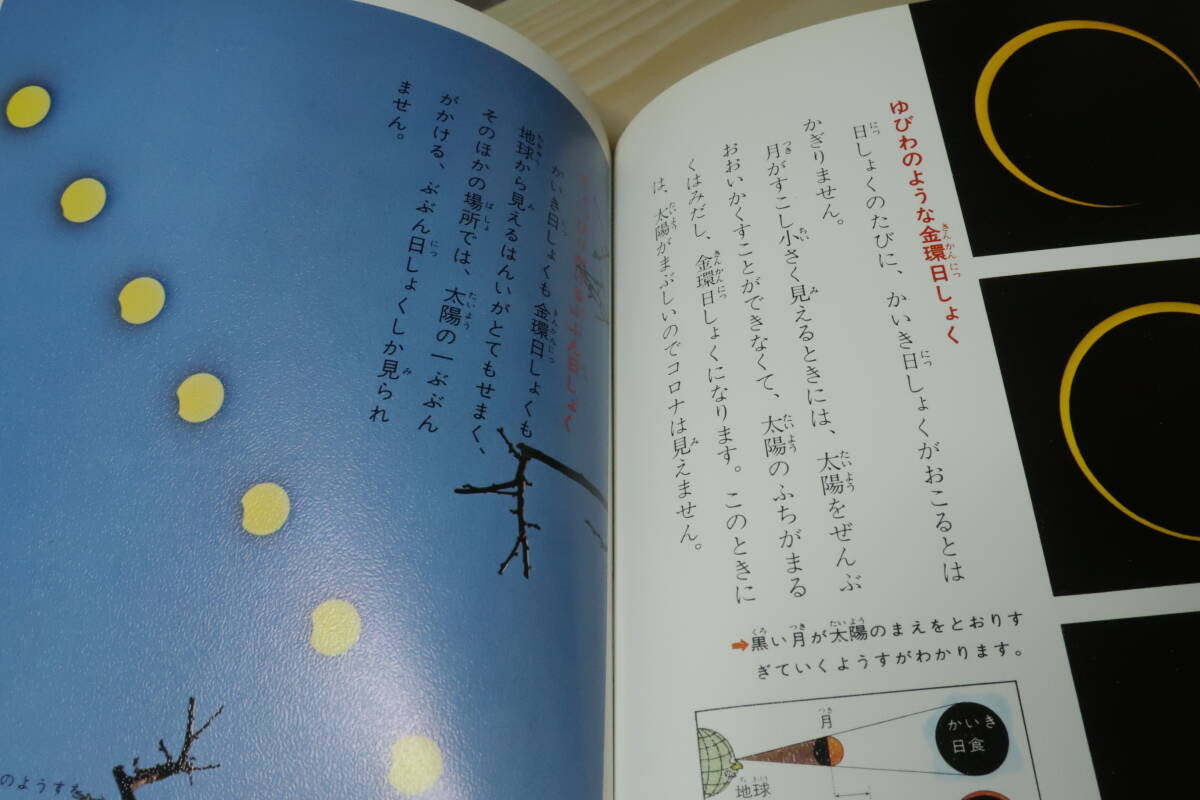 ゆびわのような金環日しょく
日しょくのたびに、かいき日しょくがおこるとは
かぎりません。
月がすこし小さく見えるときには、太陽をぜんぶ
おおいかくすことができなくて、太陽のふちがまる
くはみだし、金環日しょくになります。このときに
は、太陽がまぶしいのでコロナは見えません。
➡黒い月が太陽のまえをとおりす
ぎていくようすがわかります。
月
かいき
日食
地球
かいき日しょくも金環日しょくも
地球から見えるはんいがとてもせまく、
そのほかの場所では、太陽の一ぶぶん
がかける、ぶぶん日しょくしか見られ
ません。
のようすを